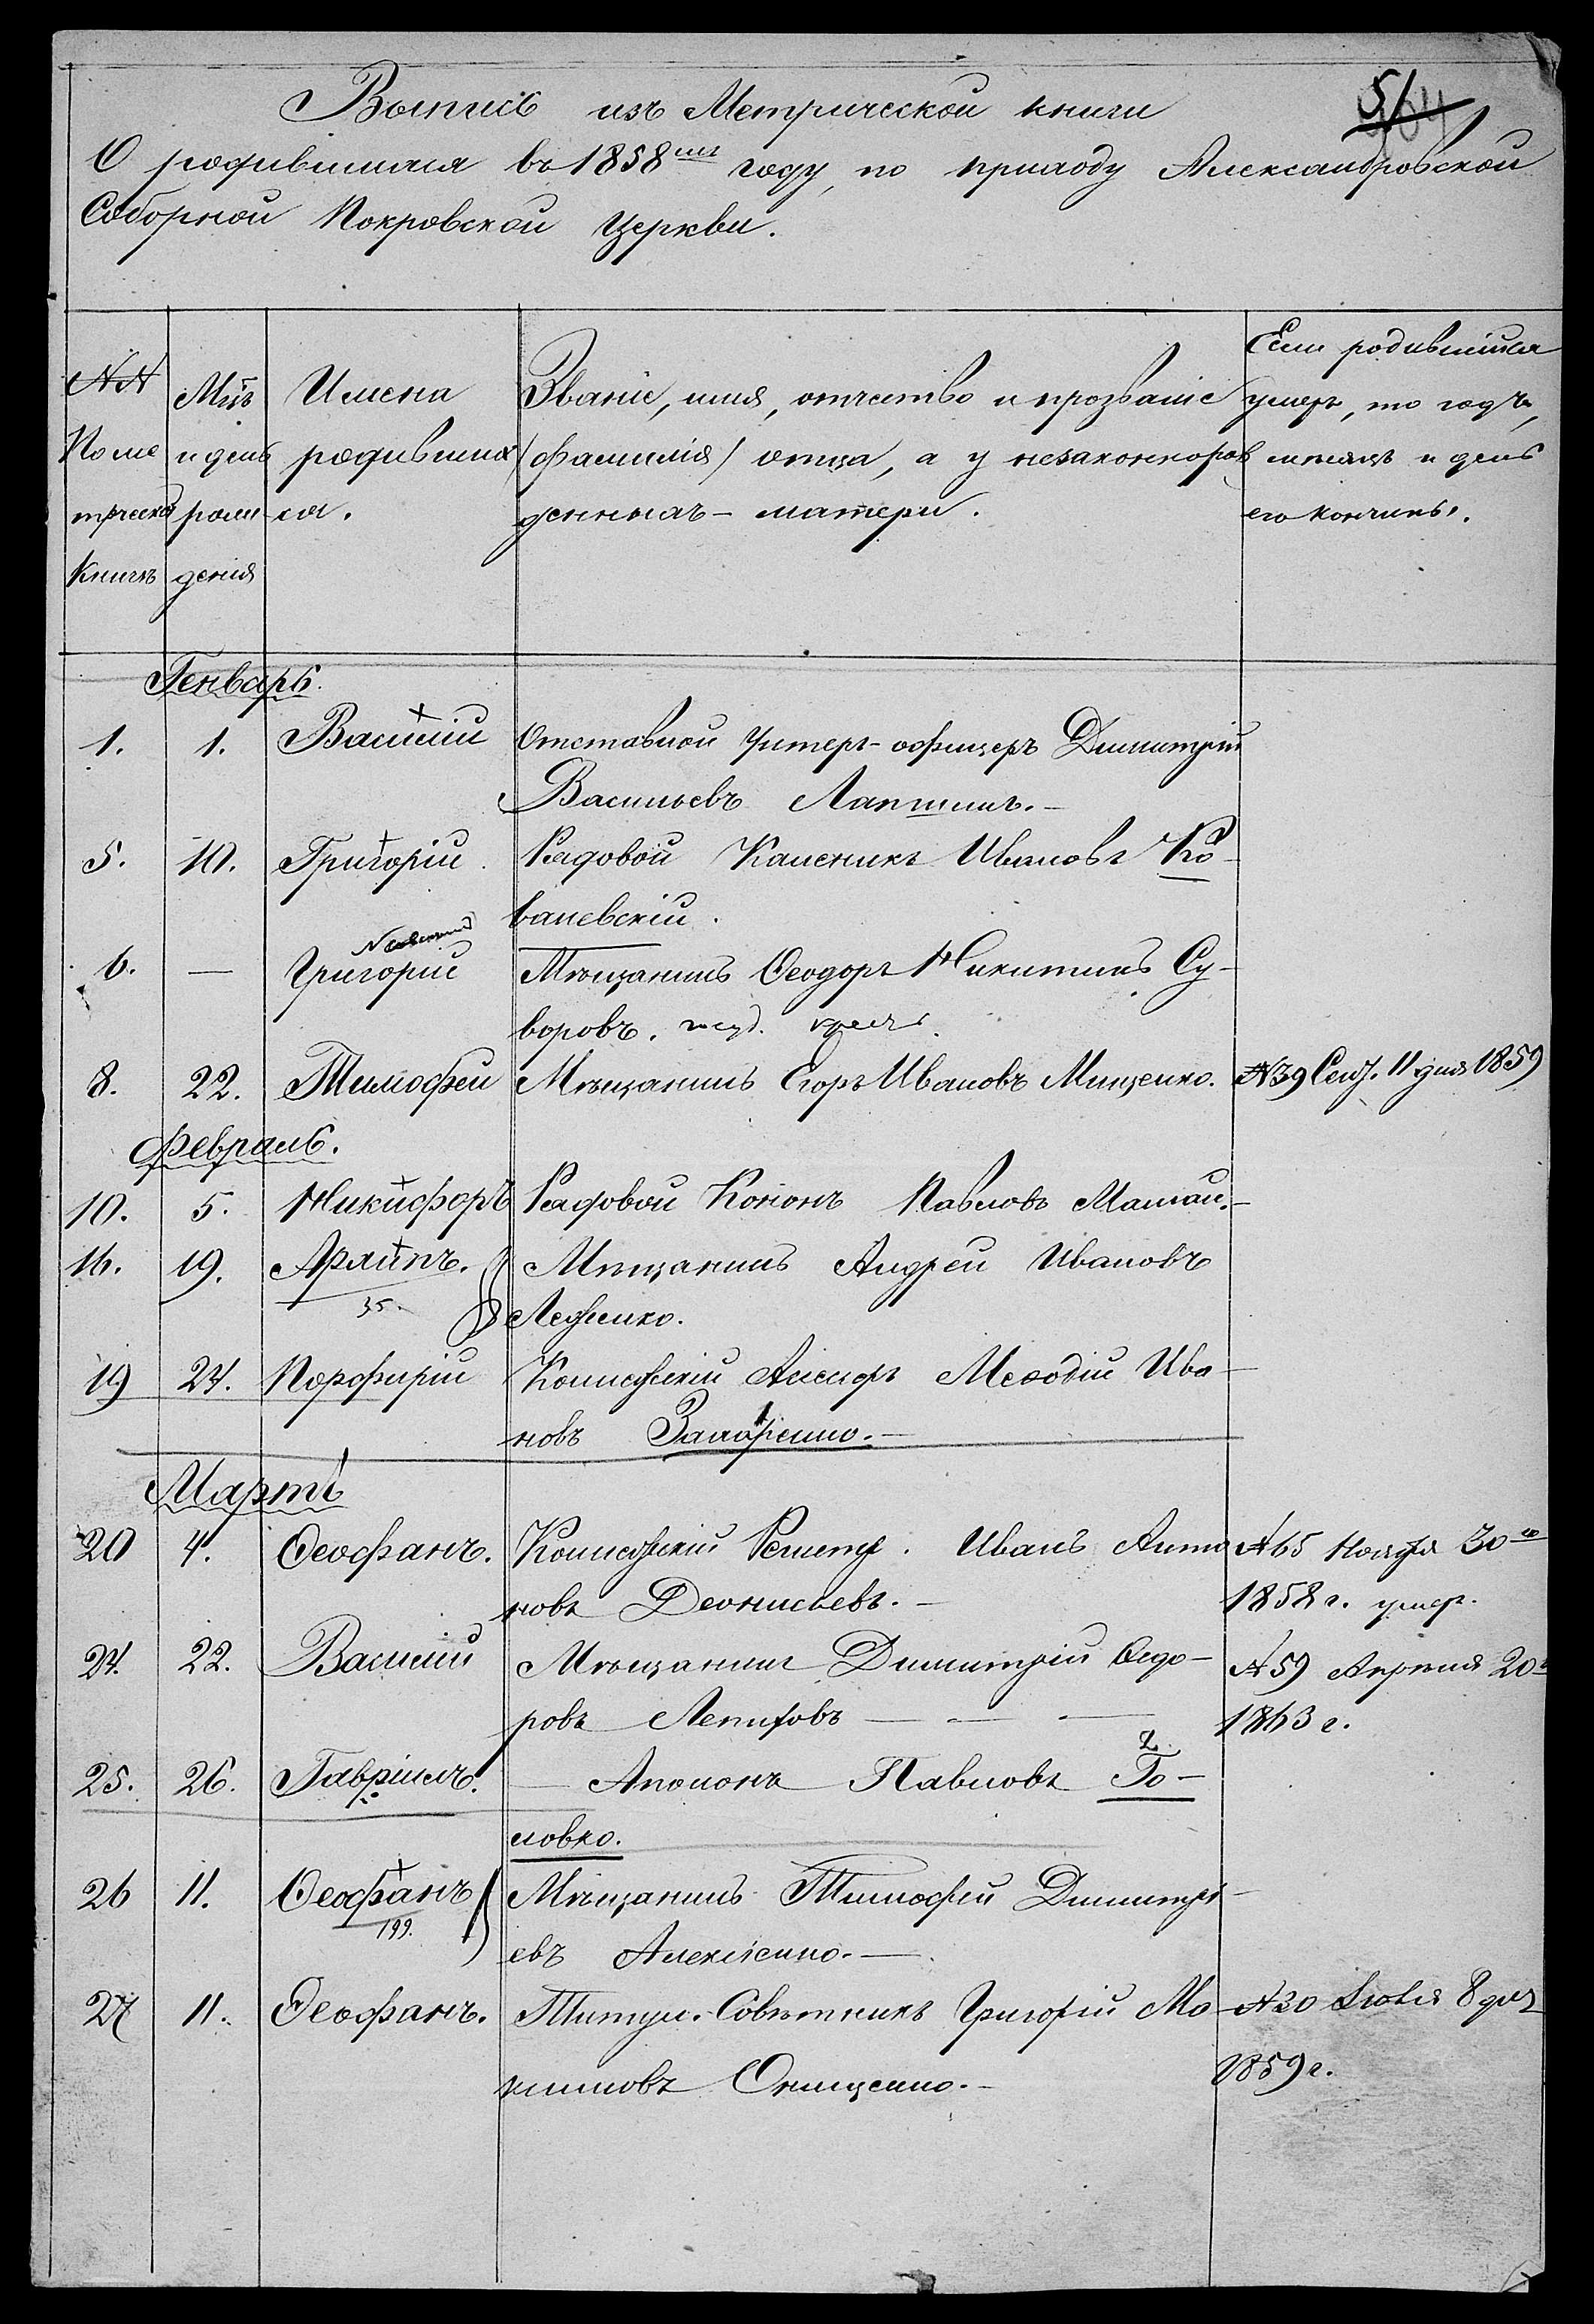 51
Выпись изъ Метрической книги
О родившихся въ 1858мъ году, по приходу Александровской
Соборной Покровской Церкви.
NN По метрической книгѣ
Мцъ и день рожденія
Имена родившихся.
Званіе, имя, отчество и прозваніе
(фамилія) отца, а у незаконнорож
денныхъ - матери.
Если родившійся
умеръ, то годъ,
мѣсяцъ и день
его кончины.
Генварь.
1. 1. Василій Отставной Унтеръ-офицеръ Димитрій
Васильевъ Лапшинъ.-
5. 10. Григорій Рядовой Каленикъ Ивановъ Ко-
валевскій.
6. — Григорій Мѣщанинъ Ѳеодоръ Никитинъ Су-
воровъ.
8. 22. Тимофей Мѣщанинъ Егоръ Ивановъ Мищенко. N39 11 дня 1859
Февраль.
10. 5. Никифоръ Рядовой Кононъ Павловъ
16. 19. Архипъ. Мѣщанинъ Андрей Ивановъ
35.
19 24. Порфирій Коллежскій Мефодій Ива-
новъ
Мартъ
20 4. Ѳеофанъ. Коллежскій Регистр. Иванъ Анто N65 Ноября 30го
новъ Деонисьевъ.- 1858 г. умер.
24. 22. Василій Мѣщанинъ Димитрій Ѳедо- N59 Апрѣля 20
ровъ — — — 1863 г.
25. 26. Гавріилъ. — Аполонъ Павловъ Го-
2
ловко.
26 11. Ѳеофанъ Мѣщанинъ Тимофей Димитрі-
199.
евъ Алексѣенко.—
27 11. Ѳеофанъ. Титул. Совѣтникъ Григорій Ма- N30 8 дня
ксимовъ Онищенко.- 1859 г.